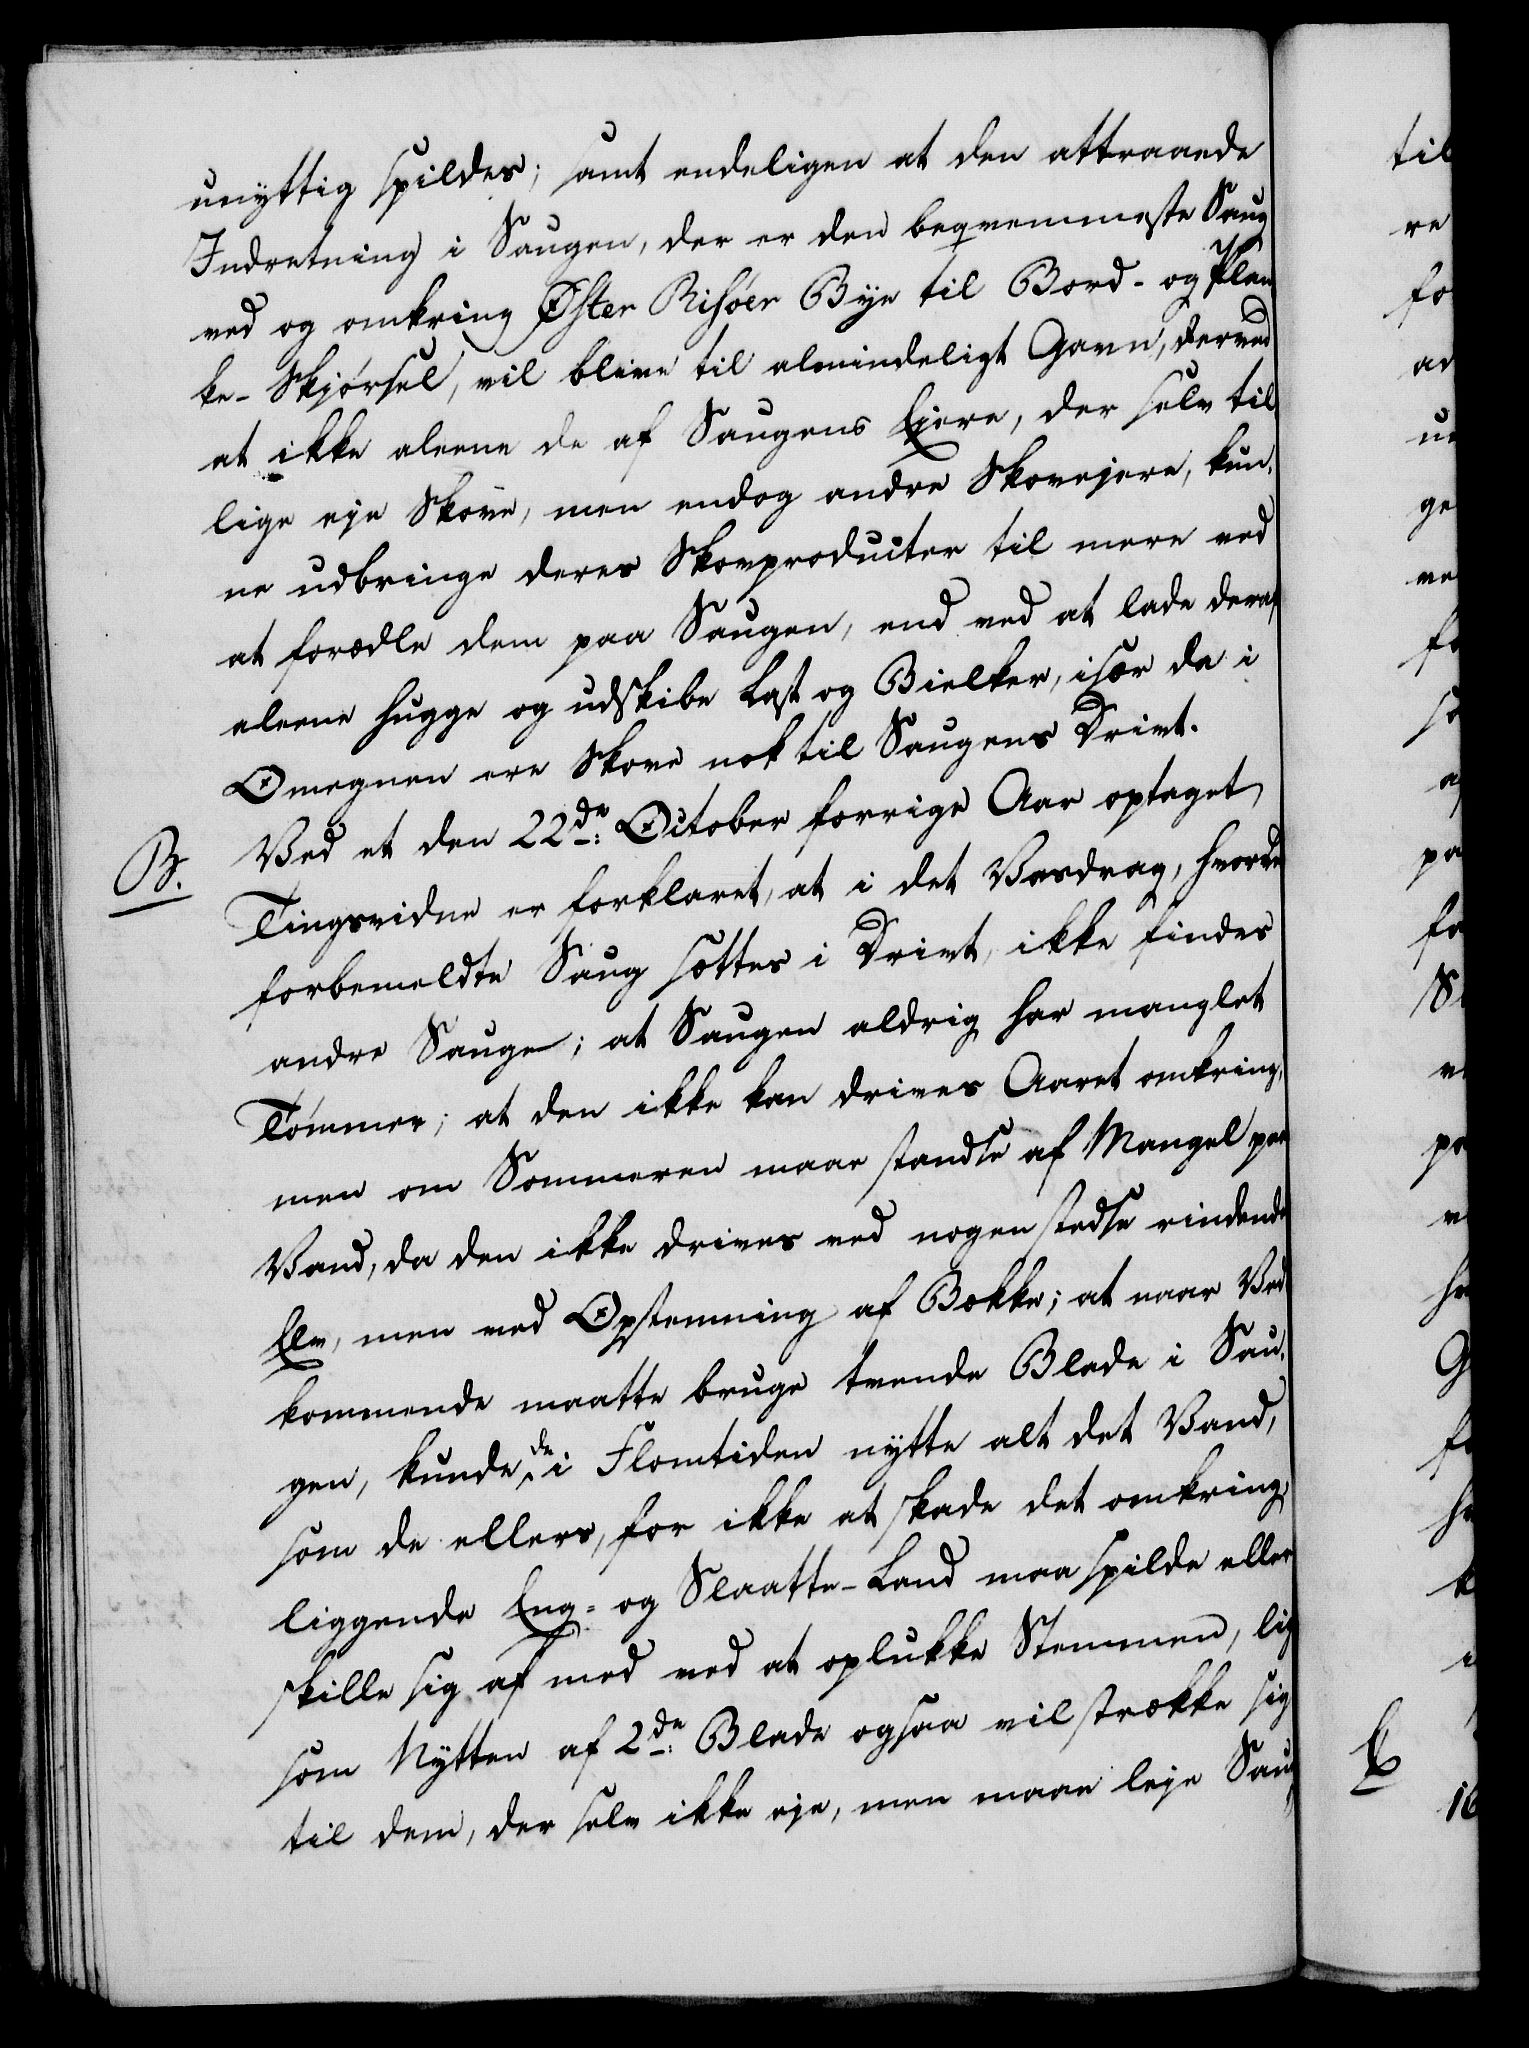 unyttig spildes; samt endeligen at den attraaede
Indretning i Saugen, der er den beqvemmeste Saug
ved og omkring Øster Risöer Bye til Bord- og Plan
ke- Skjörsel, vil blive til almindeligt Gavn, derved
at ikke aleene de af Saugens Ejere, der selv til
lige eje Skove, men endog andre Skovejere, kun,
ne udbringe deres Skovproducter til mere ved
at forædle dem paa Saugen, end ved at lade deraf
aleene hugge og udskibe Last og Bielker, især da i
Omegnen ere Skove nok til Saugens Drivt.
B. Ved et den 22de: October forrige Aar optaget
Tingsvidne er forklaret, at i det Vasdrag, hvorved
forbemeldte Saug sættes i Drivt, ikke findes
andre Sauge; at Saugen aldrig har manglet
Tömmer; at den ikke kan drives Aaret omkring,
men om Sommeren maae standse af Mangel paa
Vand, da den ikke drives ved nogen stedse rindende
Elv, men ved Opstemning af Bække; at naar Ved
kommende maatte bruge tvende Blade i Sau,
gen, kunde de i Flomtiden nytte alt det Vand,
som de ellers, for ikke at skade det omkring,
liggende Eng- og Slaatte-Land maa spilde eller
skille sig af med ved at oplukke Stemmen, lig
som Nytten af 2de: Blade ogsaa vil strække sig
til dem, der selv ikke eje, men maae leje Saug
til
re
fo
ad
ge
fo
pa
fo
S
G
E
16